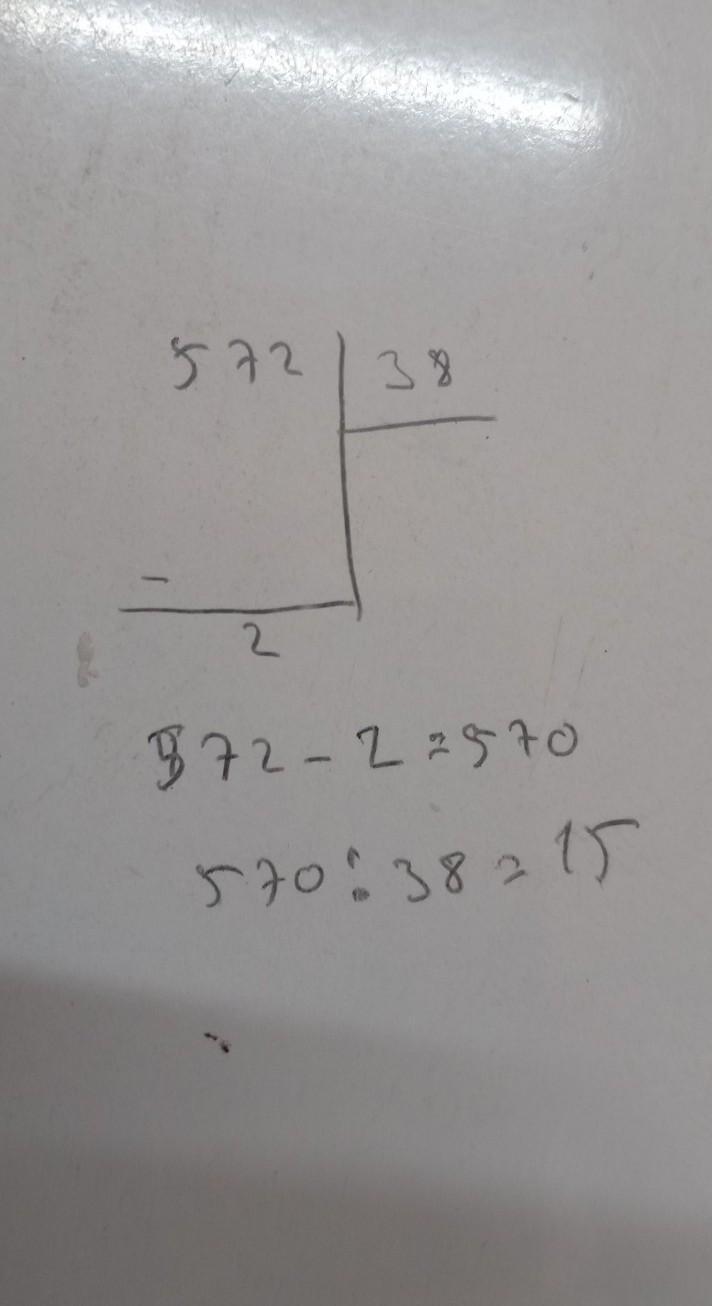 572 38
-
2
572 - 2 = 570
570 : 38 = 15